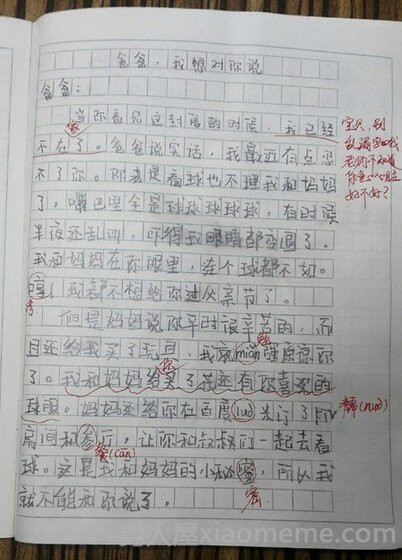 爸爸，我想对你说
爸爸：
当你看见这封信的时候，我已经
家
不在了。爸爸说实话，我最近有点忍
不了你。你老是看球也不理我和妈妈
了，嘴巴里全是球球球球球。有时候
半夜还乱叫，吓得我眼睛都变圆了。
我和妈妈在你眼里，连个球都不如。
哼！我都不想给你过父亲节了。
但是妈妈说你平时很辛苦的，而
且还给我买了玩具，我就mian强原谅你
了。我和妈妈给买了花还有你喜欢的
你
球服。妈妈还给你在百度luo先订了
房间和参厅，让你和叔叔们一起去看
餐(cān)
球。这是我和妈妈的小秘蜜，所以我
密
就不能和你说了。
宝贝，别
老师
好不好？
糯(nuò)
xiaomeme.com